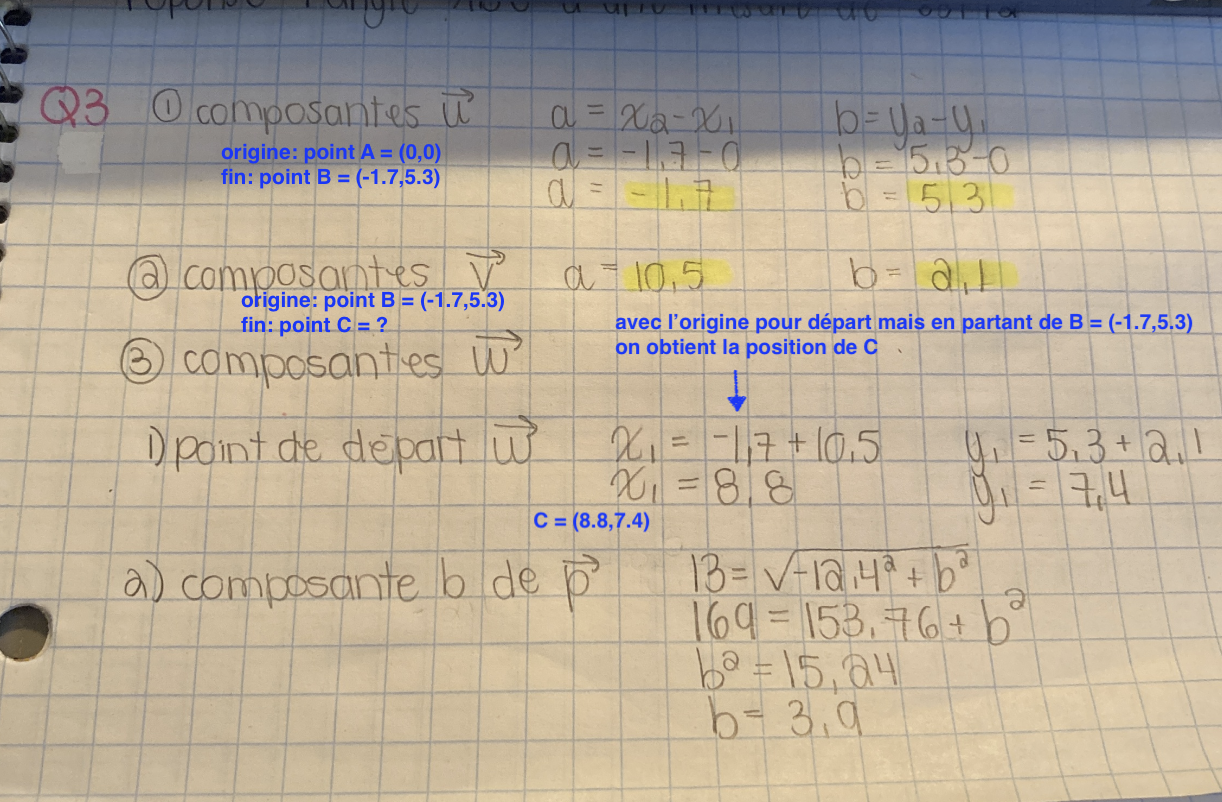 réponse l'angle
Q3 ① composantes u⃗ a = x2 - x1 b = y2 - y1
origine: point A = (0,0) a = -1,7 - 0 b = 5,3 - 0
fin: point B = (-1.7,5.3) a = -1,7 b = 5,3
② composantes v⃗ a = 10,5 b = 2,1
origine: point B = (-1.7,5.3)
fin: point C = ?
avec l'origine pour départ mais en partant de B = (-1.7,5.3)
on obtient la position de C
③ composantes w⃗
1) point de départ w⃗ x1 = -1,7 + 10,5 y1 = 5,3 + 2,1
x1 = 8,8 y1 = 7,4
C = (8.8,7.4)
2) composante b de p⃗ 13 = √-12,4² + b²
169 = 153,76 + b²
b² = 15,24
b = 3,9